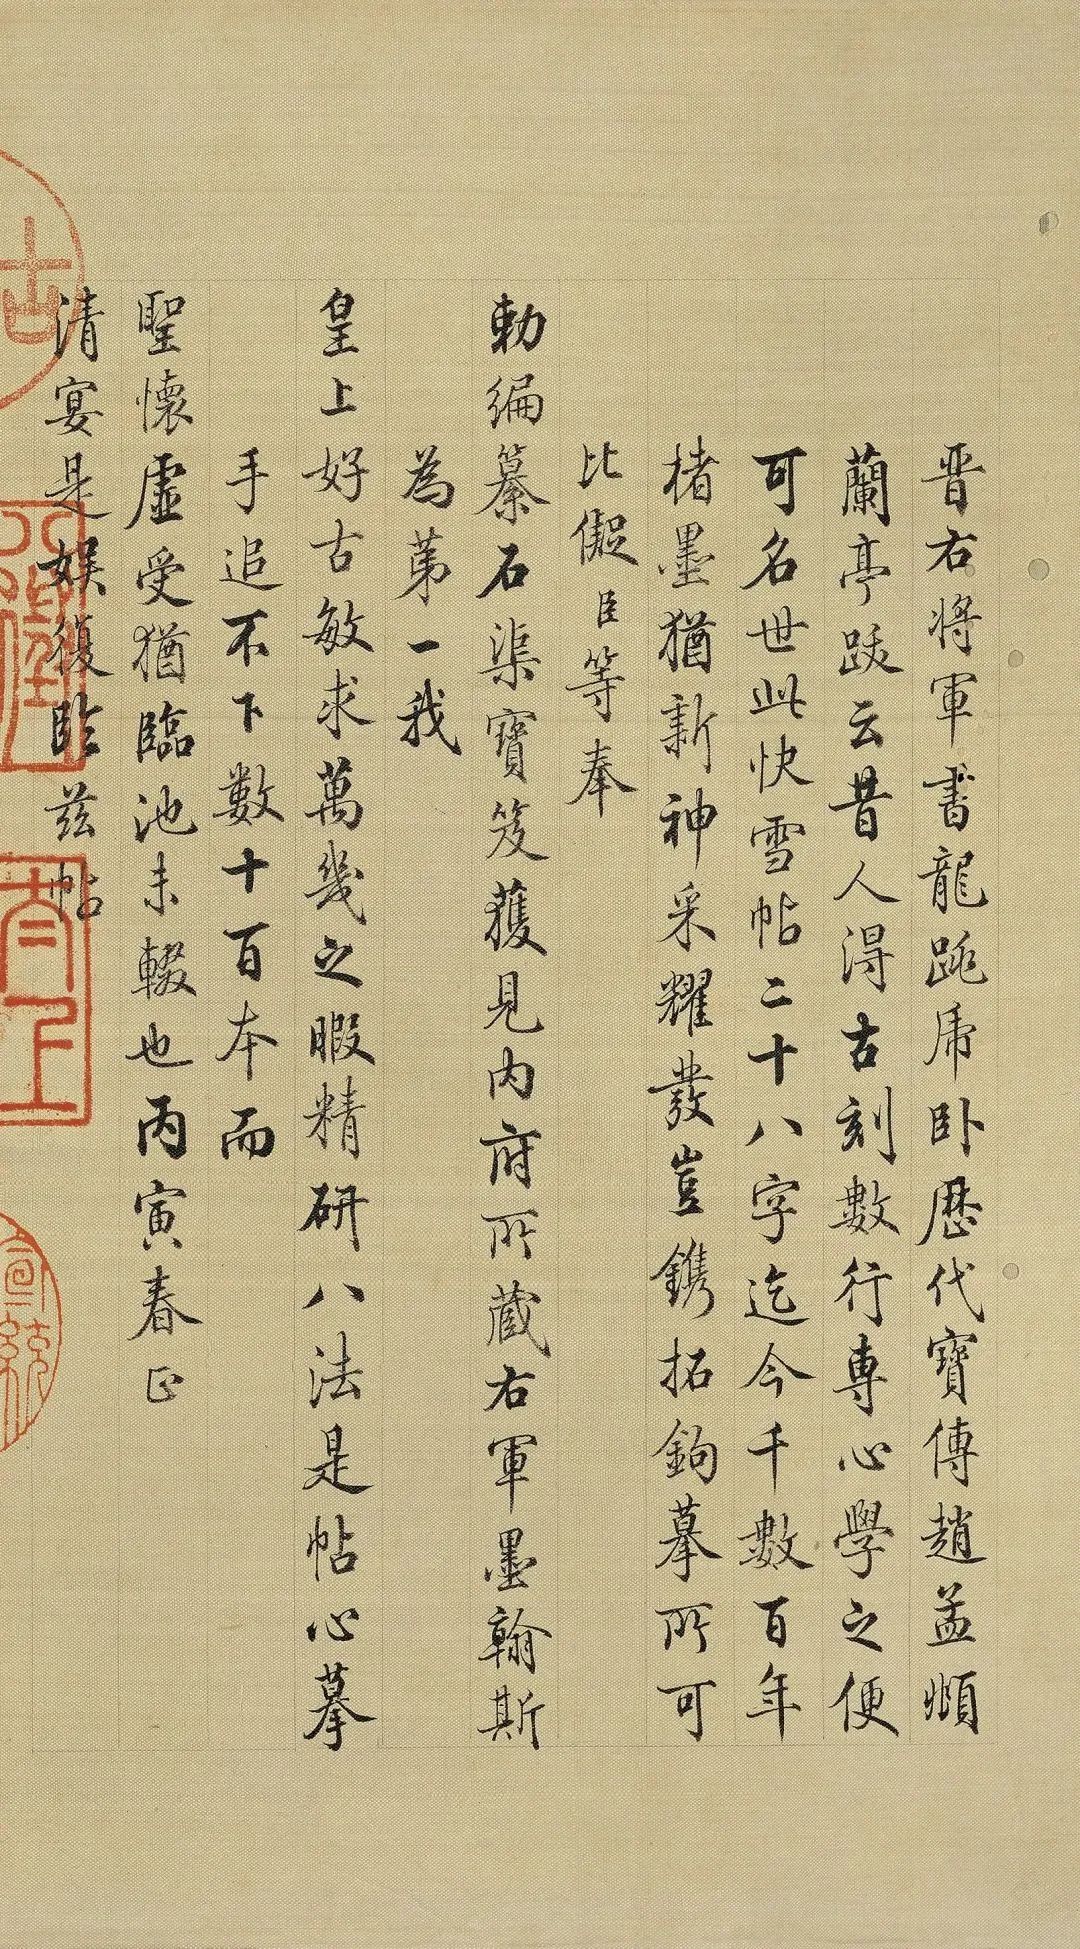 晉右將軍書龍跳乕卧歷代寶傳趙孟頫
蘭亭跋云昔人得古刻數行專心學之便
可名世此快雪帖二十八字迄今千數百年
楮墨猶新神采耀發豈鐫拓鉤摹所可
比儗臣等奉
勅編纂石渠寶笈獲見內府所藏右軍墨翰斯
為第一我
皇上好古敏求萬幾之暇精研八法是帖心摹
手追不下數十百本而
聖懷虛受猶臨池未輟也丙寅春正
清宴是娛復臨茲帖